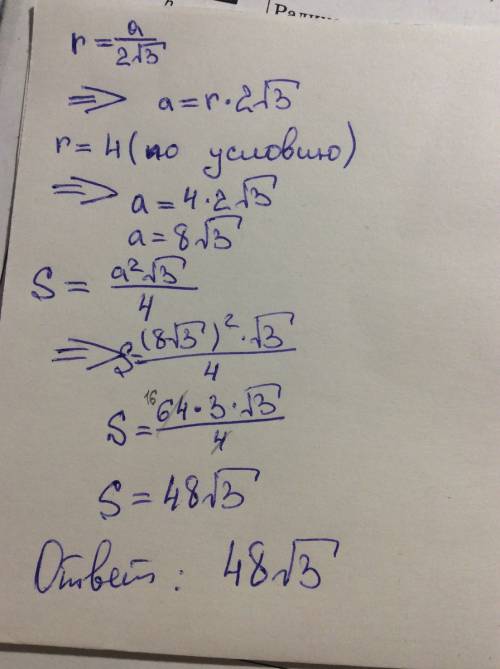 r = a / 2√3
⇒ a = r · 2√3
r = 4 (по условию)
⇒ a = 4 · 2√3
a = 8√3
S = a²√3 / 4
⇒ S = (8√3)² · √3 / 4
S = 16 64 · 3 · √3 / 4
S = 48√3
Ответ: 48√3